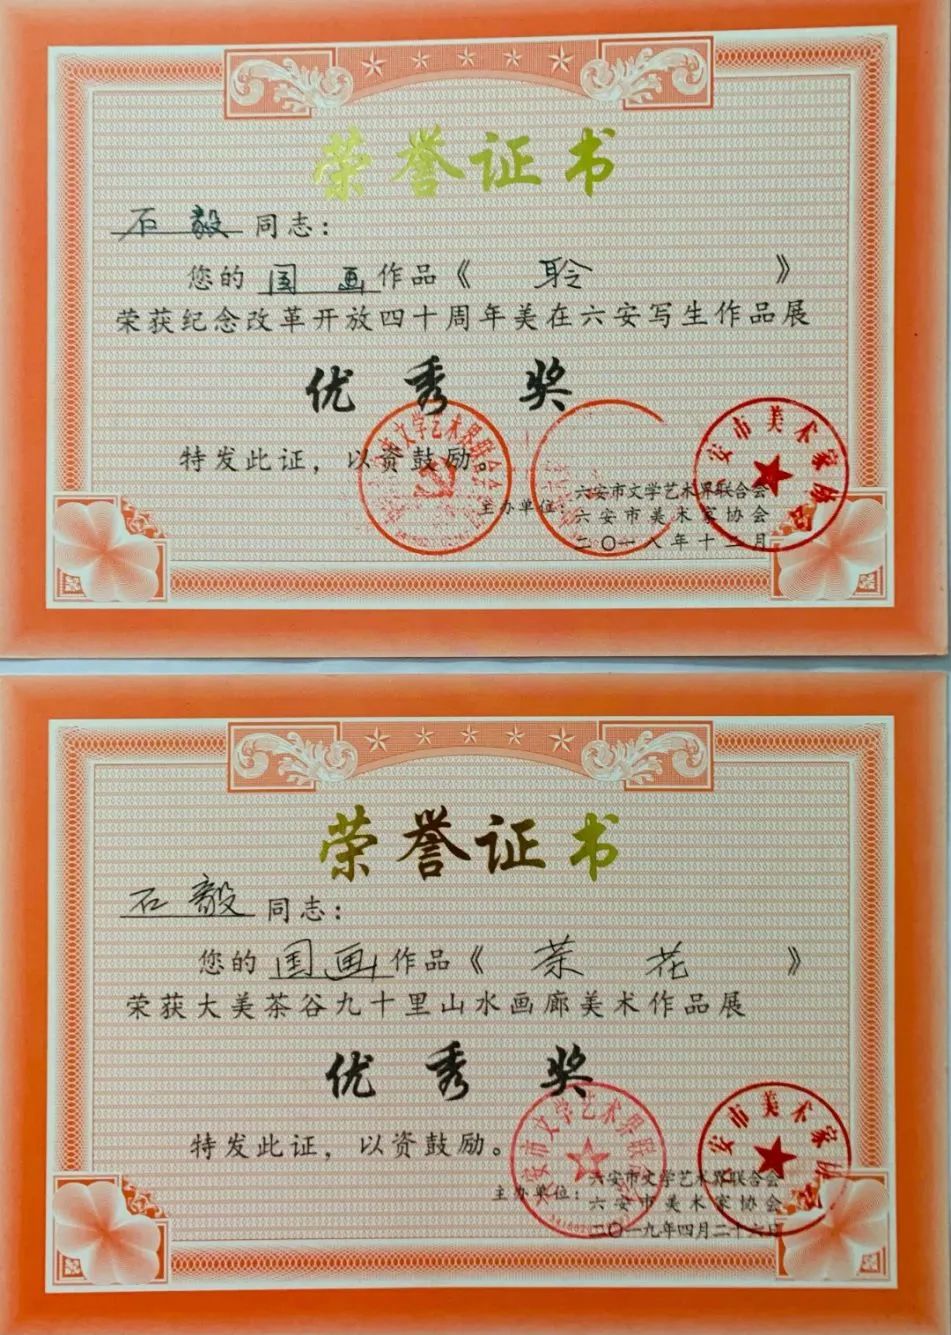 荣誉证书
石毅同志：
您的国画作品《 聆 》
荣获纪念改革开放四十周年美在六安写生作品展
优秀奖
特发此证，以资鼓励。
主办单位：六安市文学艺术界联合会
六安市美术家协会
二〇一八年十二月
安市美术家协会
荣誉证书
石毅同志：
您的国画作品《 茶花 》
荣获大美茶谷九十里山水画廊美术作品展
优秀奖
特发此证，以资鼓励。
主办单位：六安市文学艺术界联合会
六安市美术家协会
二〇一九年四月二十六日
六安市文学艺术界联
安市美术家协会